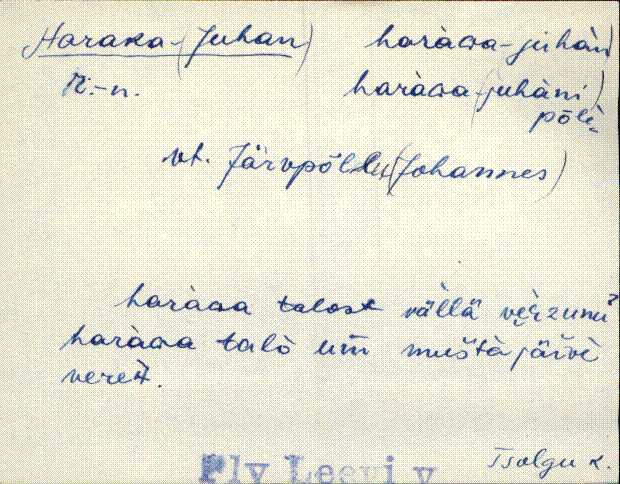 Haraka-(Juhan) haràɢa-juhàn)
R.-n. haràɢa-(juhàni)
põlì-
vt. Järvpõllu (Johannes)
haràɢa talost vällä vèrzunu'
haràɢa talò um mustàjärvè
vereh.
Plv Leevi v Tsolgu k.